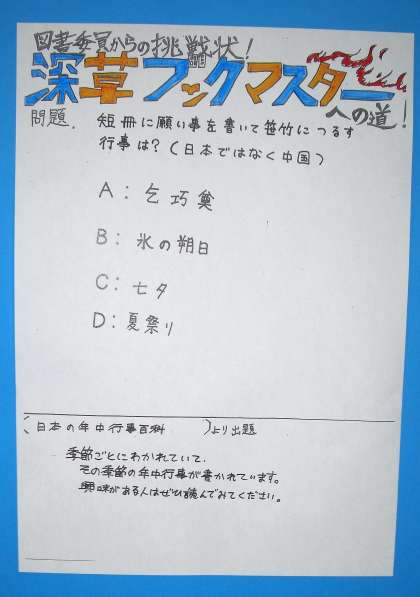 図書委員からの挑戦状！
深草ブックマスター
への道！
問題．
短冊に願い事を書いて笹竹につるす
行事は？（日本ではなく中国）
A：乞巧奠
B：氷の朔日
C：七夕
D：夏祭り
（日本の年中行事百科　）より出題
季節ごとにわかれていて．
その季節の年中行事が書かれています。
興味がある人はぜひ読んでみてください。